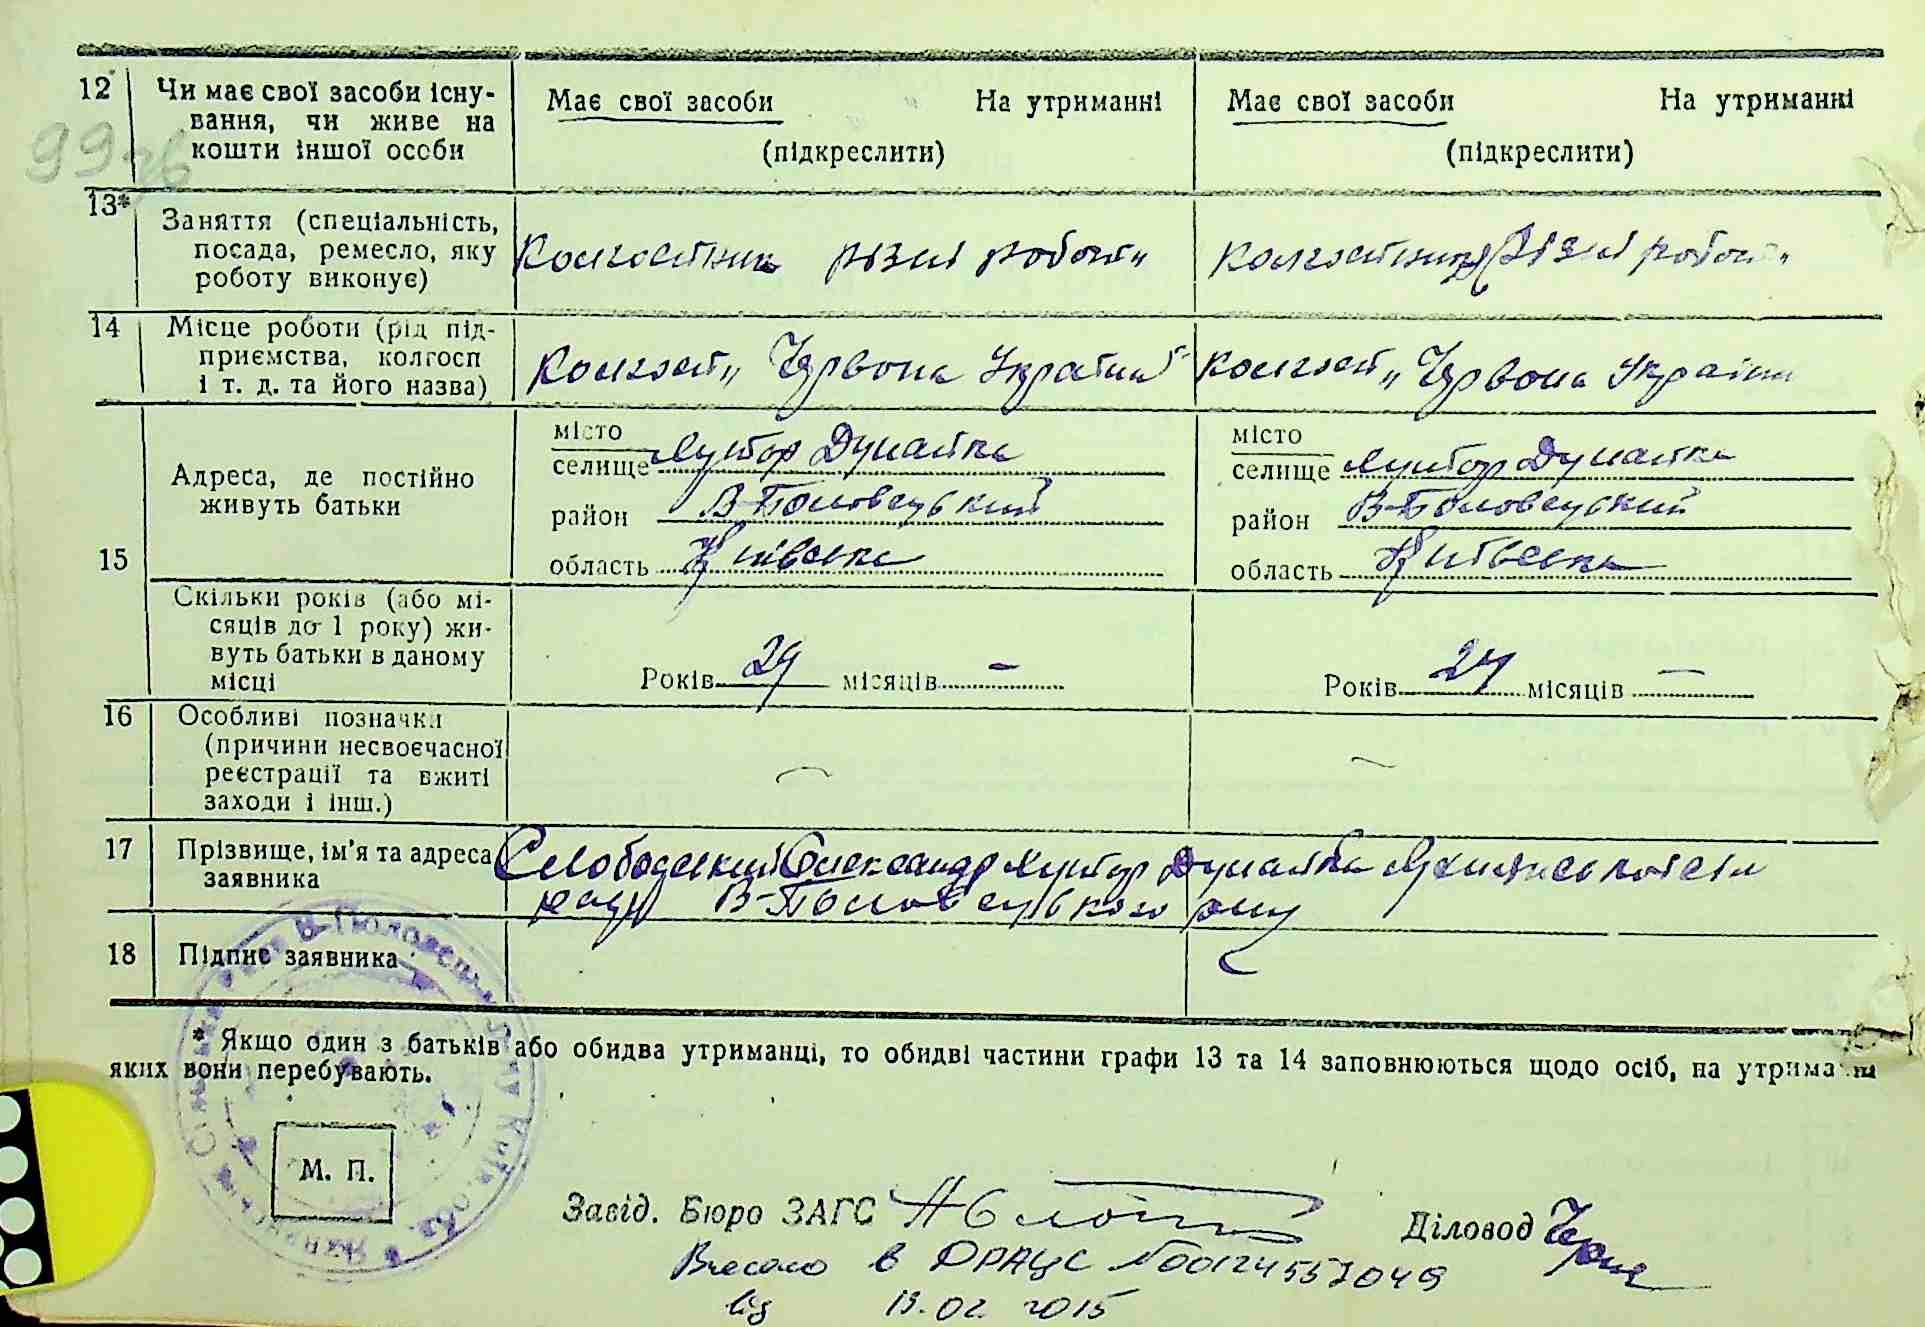 12 Чи має свої засоби існу-
вання, чи живе на
кошти іншої особи
Має свої засоби На утриманні
(підкреслити)
Має свої засоби На утриманні
(підкреслити)
99
13* Заняття (спеціальність,
посада, ремесло, яку
роботу виконує)
Колгоспник різні роботи
Колгоспниця різні роботи
14 Місце роботи (рід під-
приємства, колгосп
і т. д. та його назва)
Колгосп „Червона Україна"
Колгосп „Червона Україна
15 Адреса, де постійно
живуть батьки
місто
селище Хутор Дунайка
район В-Половецький
область Київська
місто
селище Хутор Дунайка
район В-Половецький
область Київська
Скільки років (або мі-
сяців до 1 року) жи-
вуть батьки в даному
місці
Років 29 місяців –
Років 24 місяців –
16 Особливі позначки
(причини несвоєчасної
реєстрації та вжиті
заходи і інш.)
17 Прізвище, ім'я та адреса
заявника
Слободський Олександр Хутор Дунайка
ради В-Половецького р-ну
18 Підпис заявника
* Якщо один з батьків або обидва утриманці, то обидві частини графи 13 та 14 заповнюються щодо осіб, на утриманні
яких вони перебувають.
М. П.
Завід. Бюро ЗАГС
Діловод
Внесено в ДРАЦС №00124557049
від 19.02.2015